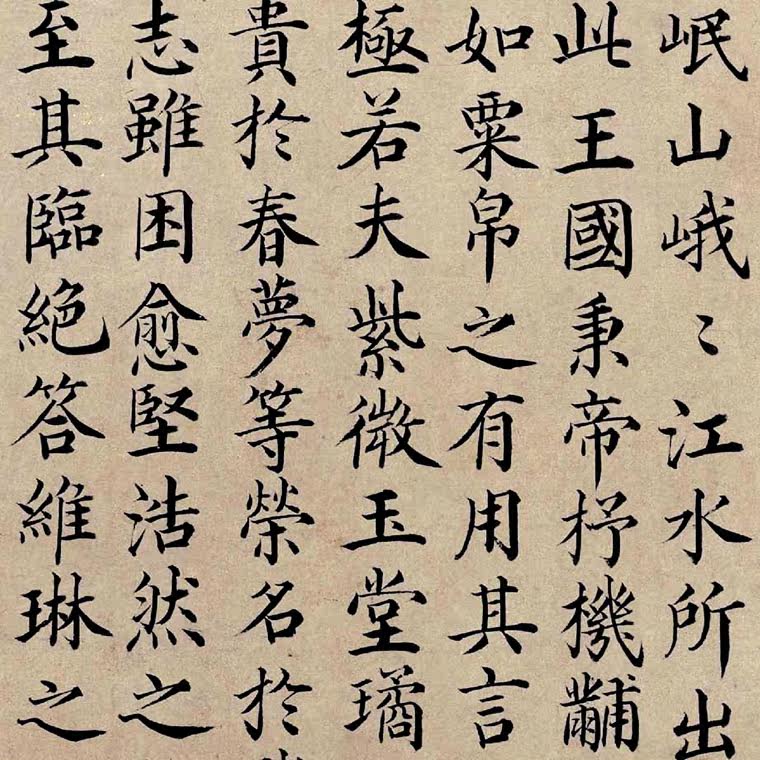 岷山峨〻江水所出
此王國秉帝杼機黼
如粟帛之有用其言
極若夫紫微玉堂璚
貴於春夢等榮名於
志雖困愈堅浩然之
至其臨絶答維琳之